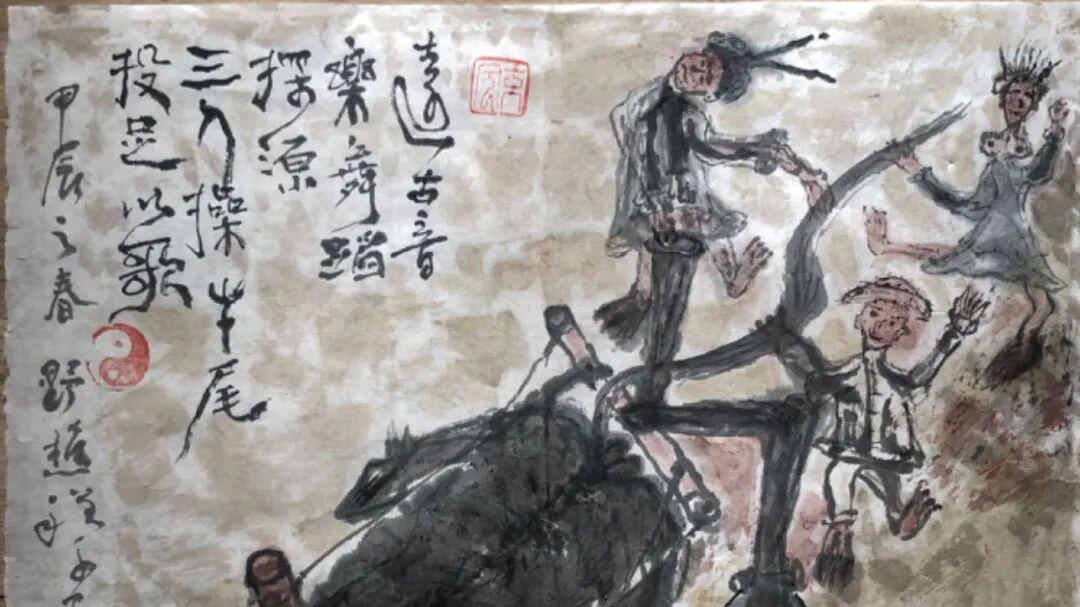 遠古音
樂舞蹈
探源
三人操牛尾
投足以歌
甲辰之春 野樵